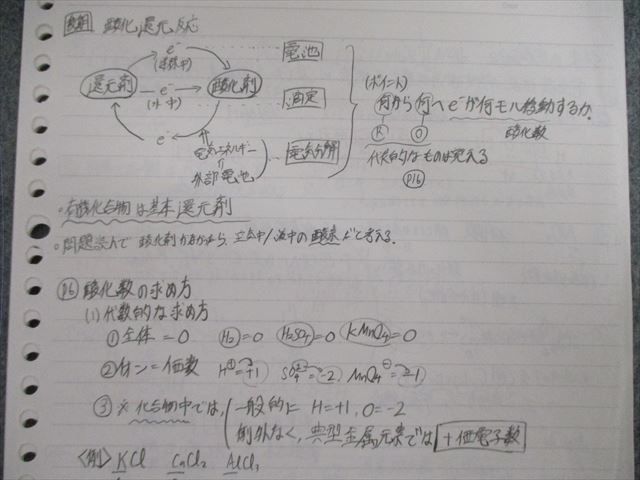 酸化還元反応
e⁻
(導線中)
電池
還元剤 — e⁻ → 酸化剤
(水中)
滴定
e⁻
電気エネルギー
外部電池
電気分解
(ポイント)
何から何へe⁻が何モル移動するか。
R O 酸化数
代表的なものは覚える
P16
・有機化合物は基本還元剤
P16 酸化数の求め方
(1) 代数的な求め方
① 全体 = 0 H₂=0 H₂SO₄=0 KMnO₄=0
② イオン = 価数 H⁺=+1 SO₄²⁻=-2 MnO₄⁻=-1
③ ※ 化合物中では, 一般的に H=+1, O=-2
例外なく, 典型金属元素では +価電子数
<例> KCl CaCl₂ AlCl₃